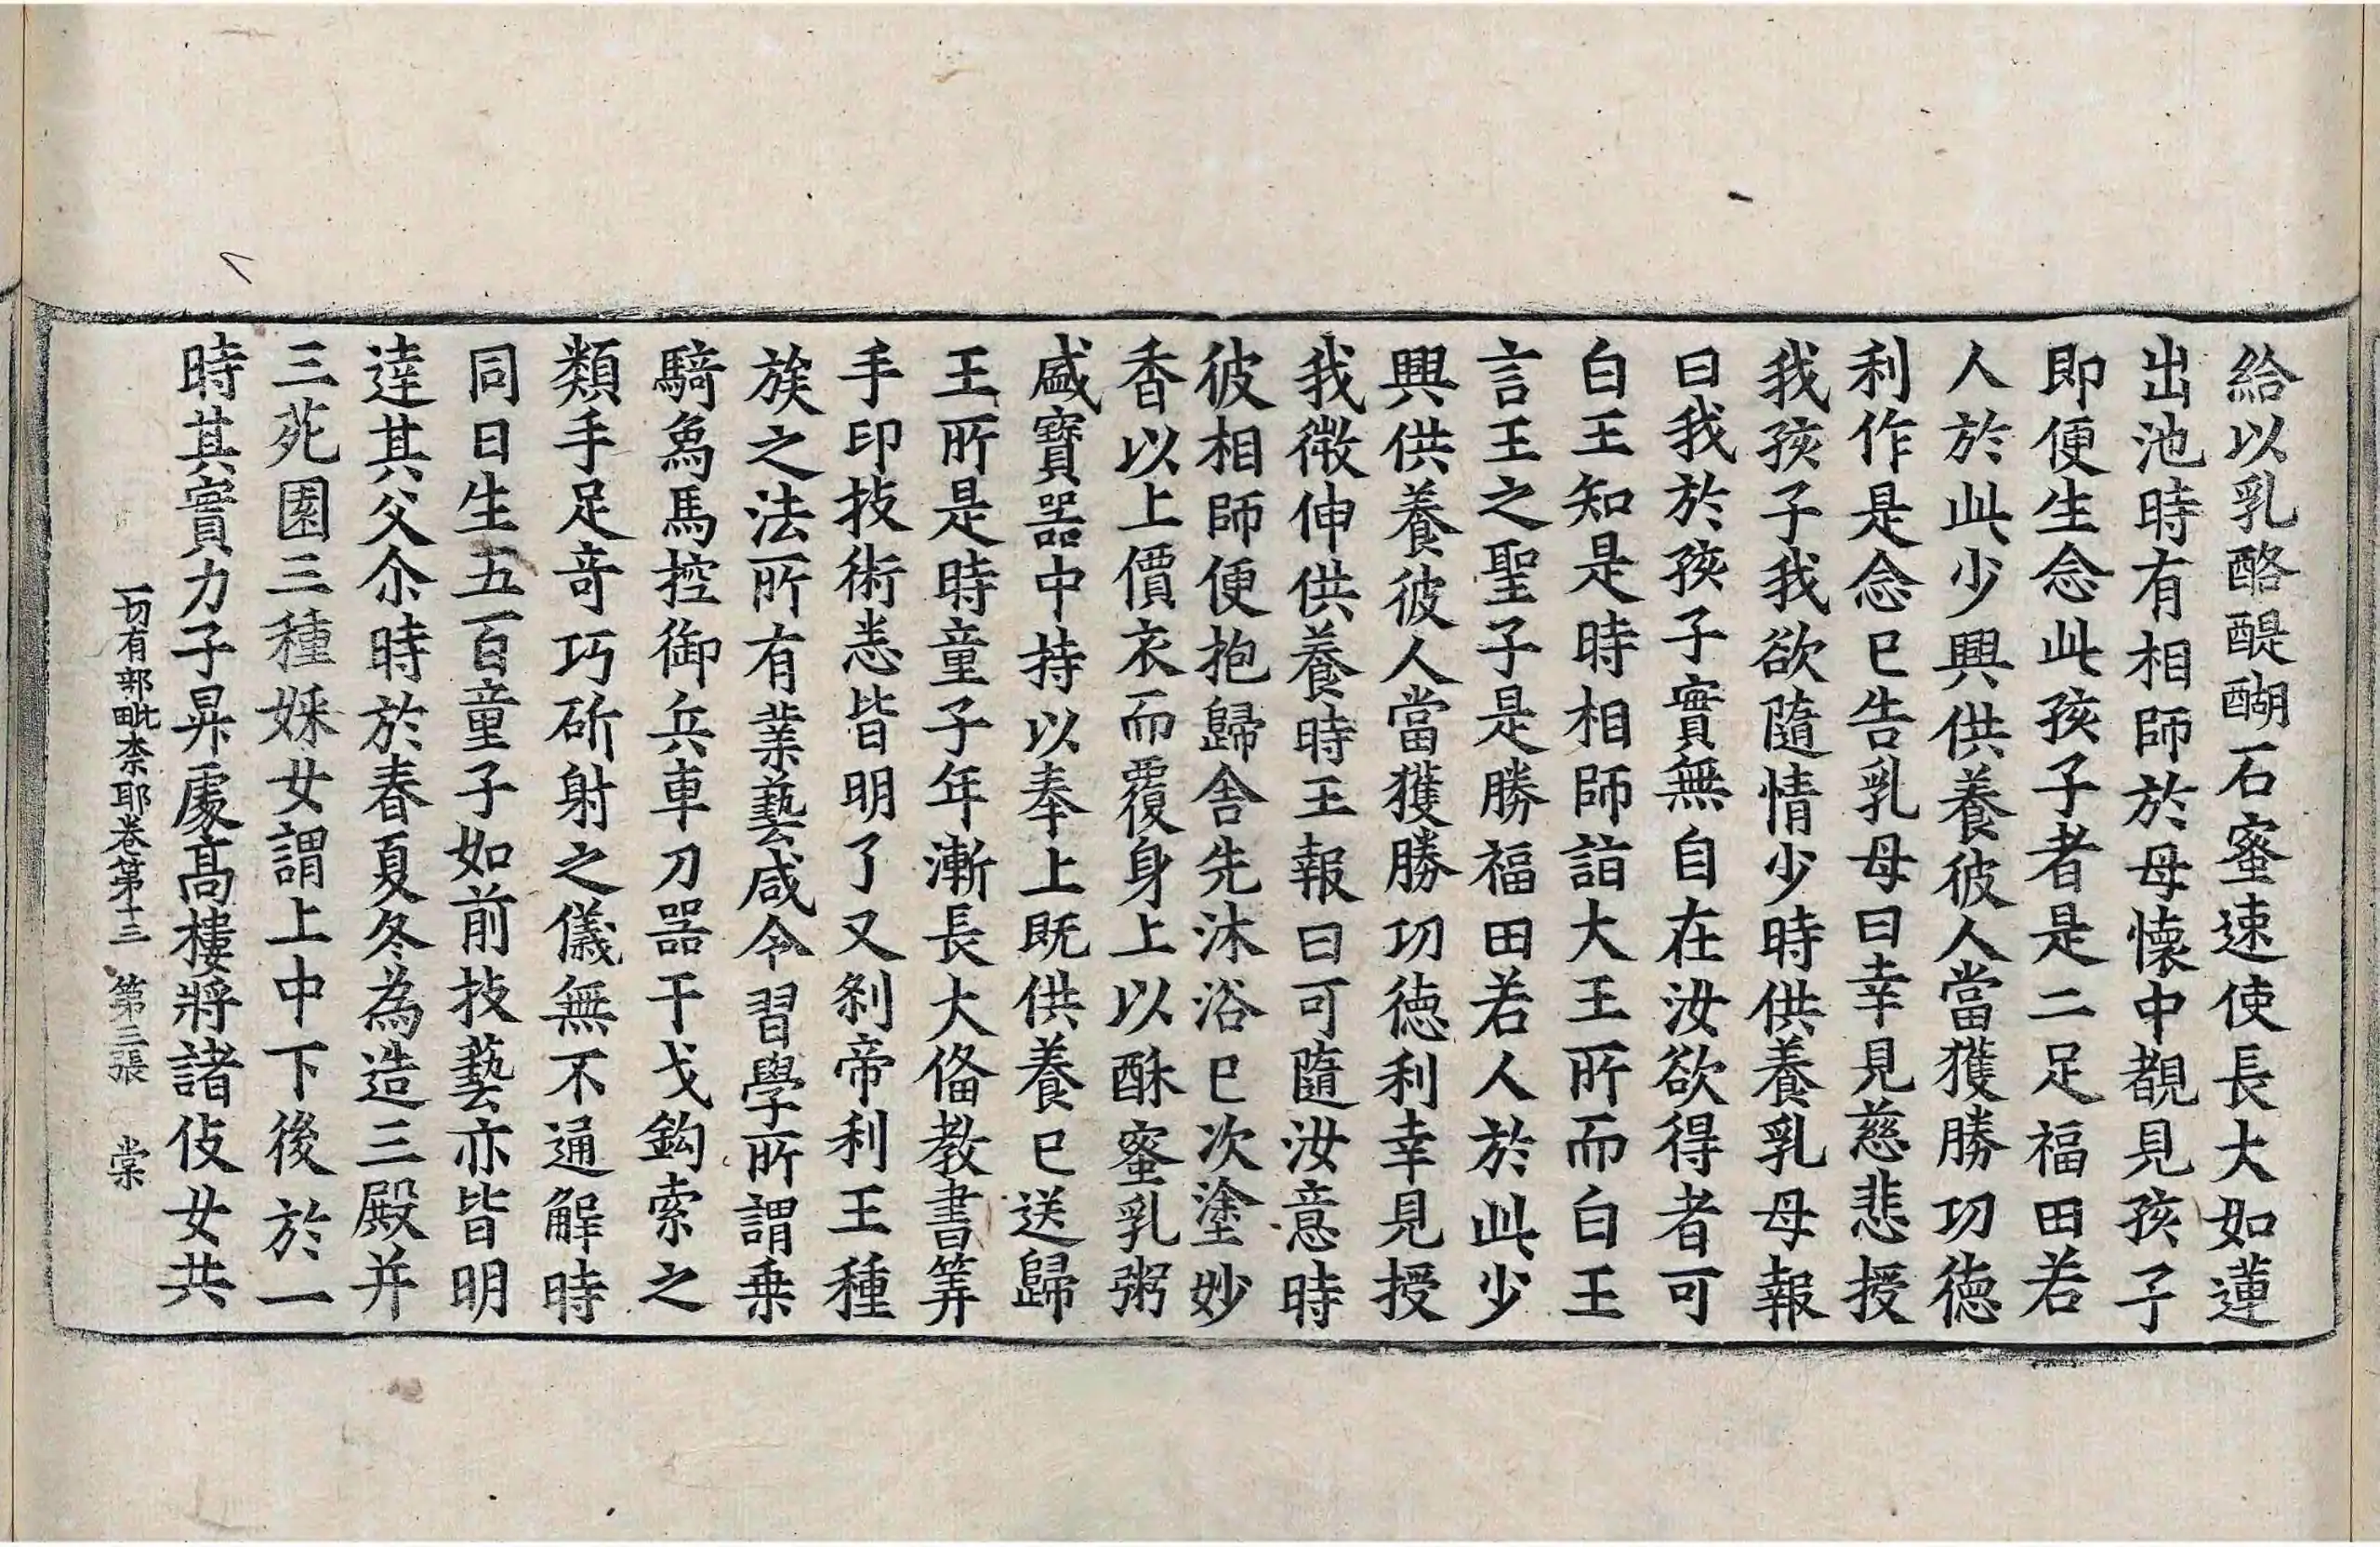 給以乳酪醍醐石蜜速使長大如蓮
出池時有相師於母懷中覩見孩子
即便生念此孩子者是二足福田若
人於此少興供養彼人當獲勝功德
利作是念已告乳母曰幸見慈悲授
我孩子我欲隨情少時供養乳母報
曰我於孩子實無自在汝欲得者可
白王知是時相師詣大王所而白王
言王之聖子是勝福田若人於此少
興供養彼人當獲勝功德利幸見授
我微伸供養時王報曰可隨汝意時
彼相師便抱歸舍先沐浴已次塗妙
香以上價衣而覆身上以酥蜜乳粥
盛寶器中持以奉上既供養已送歸
王所是時童子年漸長大俻教書筭
手印技術悉皆明了又刹帝利王種
族之法所有業藝咸令習學所謂乗
騎象馬控御兵車刀器干戈鈎索之
類手足奇巧斫射之儀無不通解時
同日生五百童子如前技藝亦皆明
達其父尒時於春夏冬為造三殿并
三苑園三種婇女謂上中下後於一
時其實力子昇處高樓將諸伎女共
一切有部毗柰耶卷第十三　第三張　棠